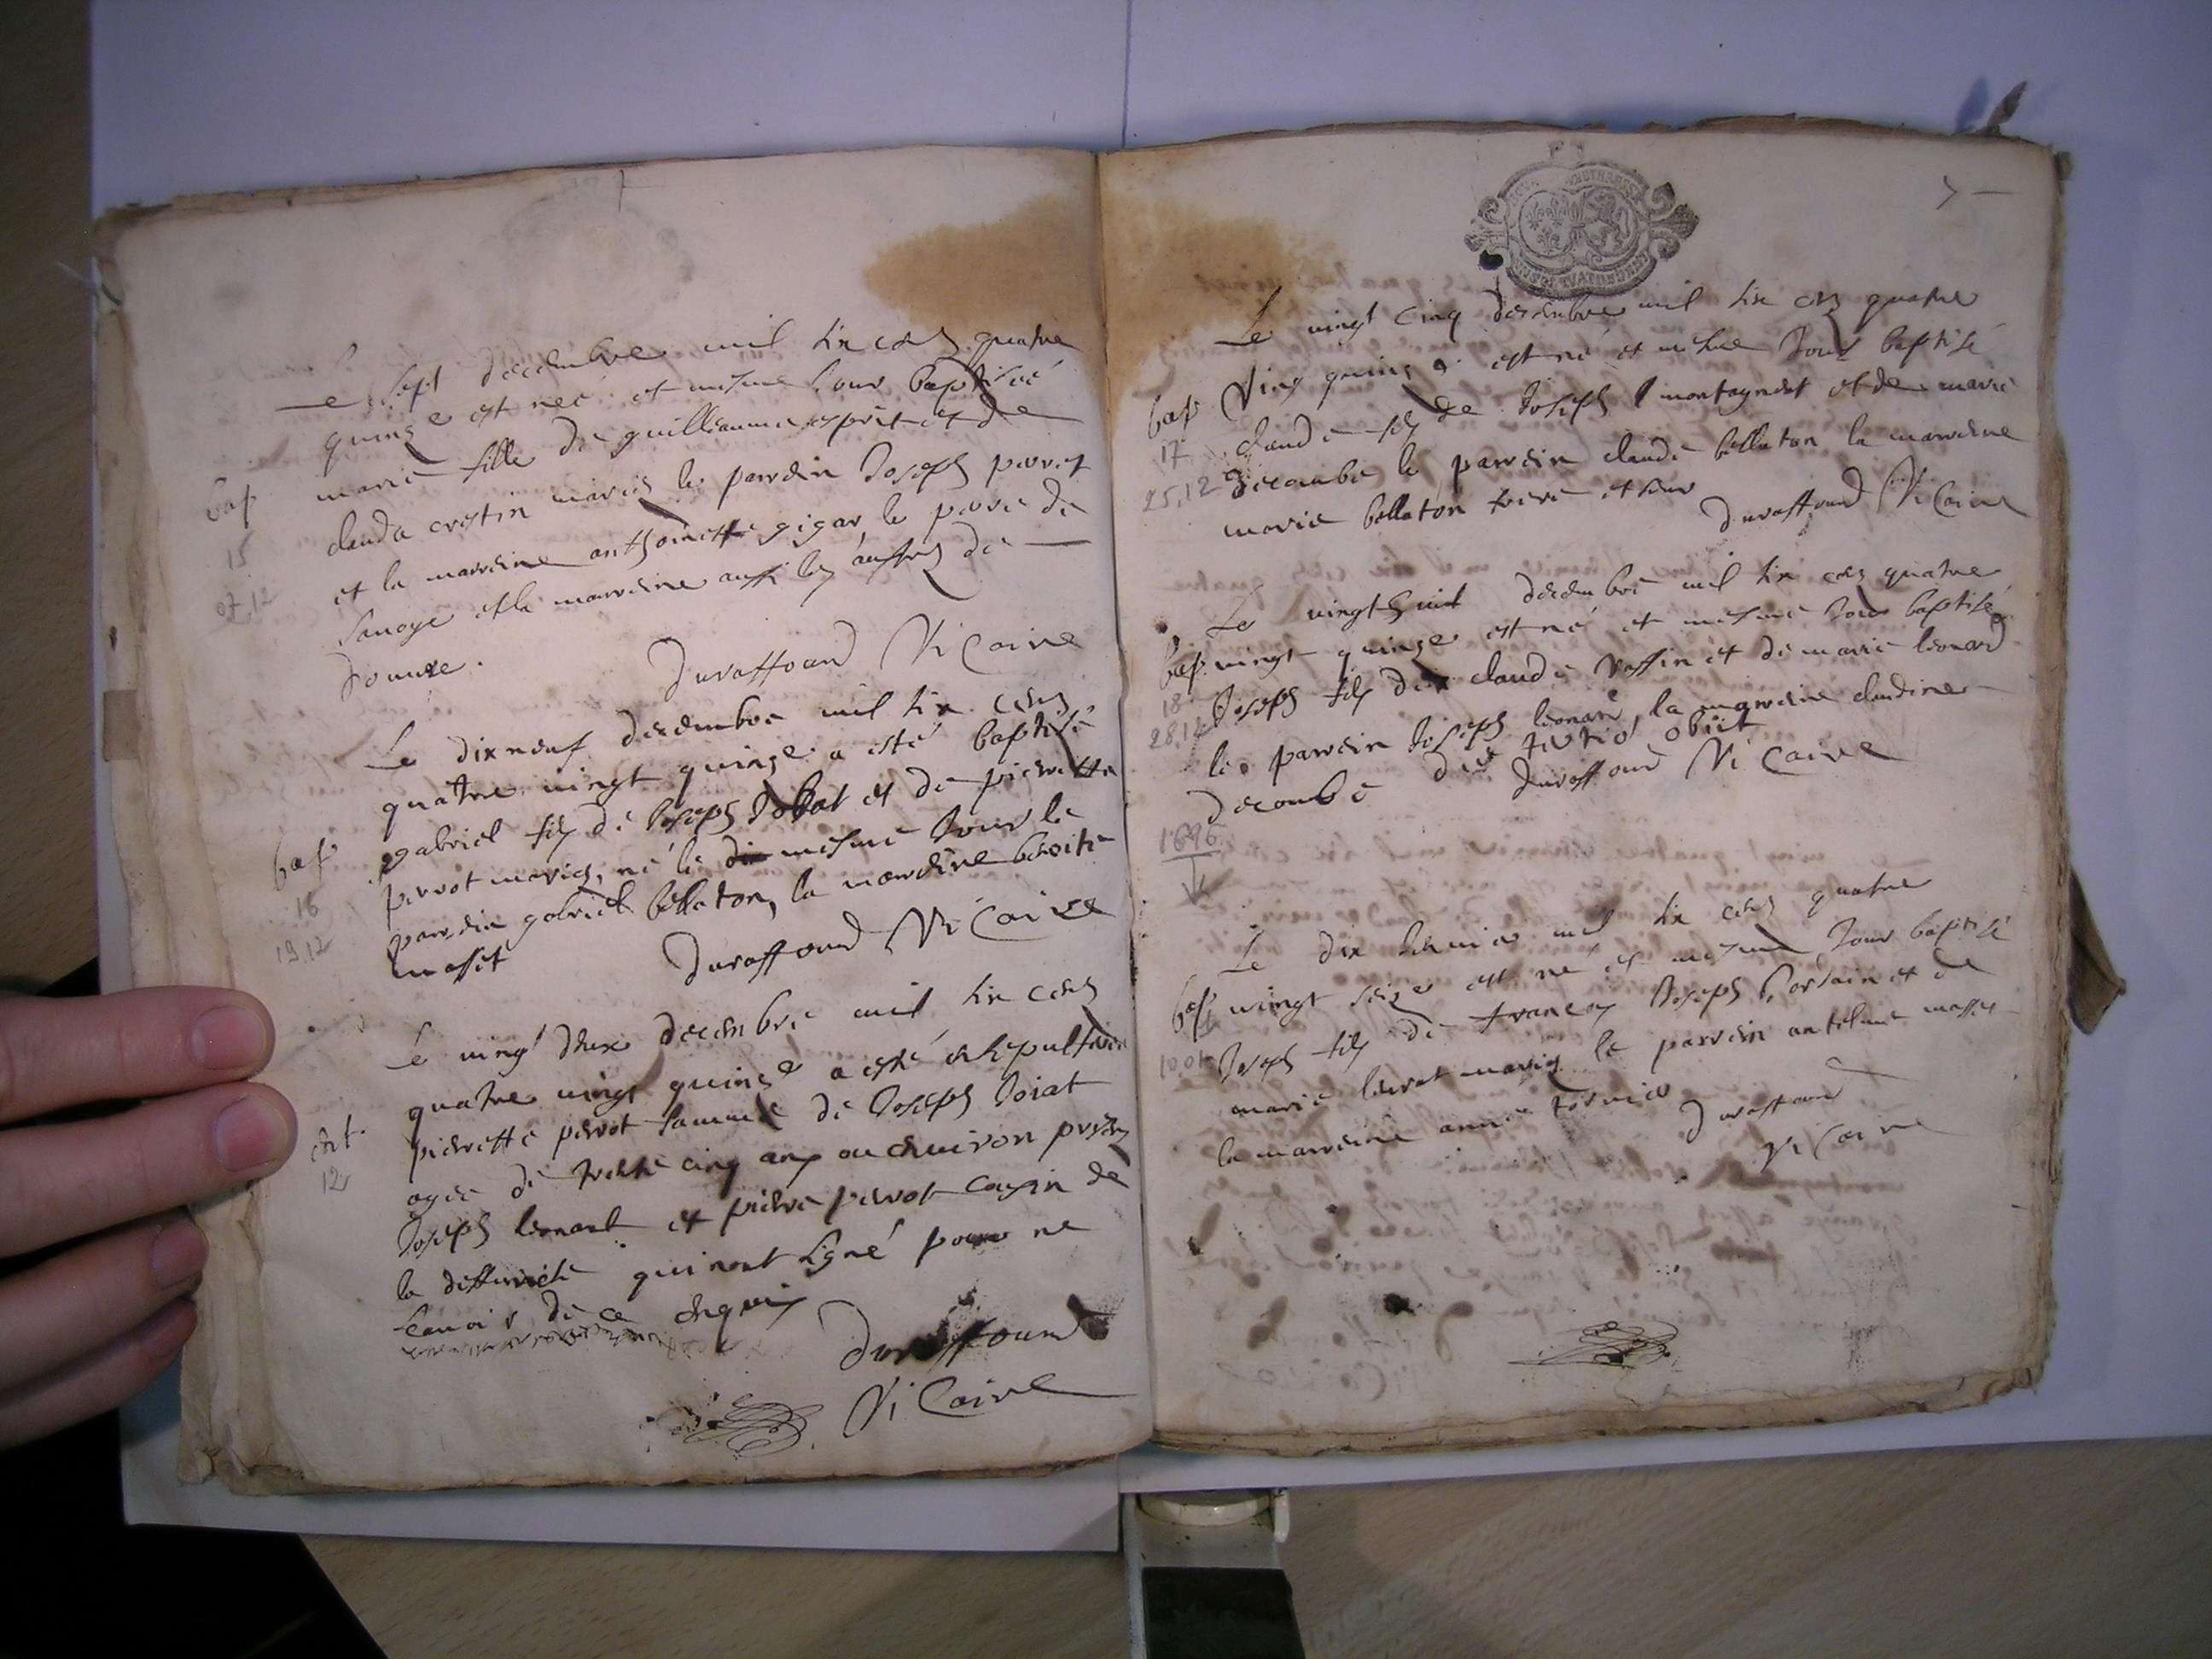 Le sept decembre mil six cens quatre
quinze est neé et mesme jour baptiseé
marie fille de guilleaume esprit et de
clauda crestin mariés le parrein Joseph perret
et la marreine anthoinette gigar le
et la marreine aussi les de
bap
15
07.12
Duraffourd Vicaire
Le dixneuf decembre mil six cens
quatre vingt quinze a esté baptisé
gabriel fils de Joseph et de pierrette
perrot mariés, né le mesme jour le
parrein gabriel bellaton, la marreine benoite
massit
bap
16
19.12
Duraffourd Vicaire
Le vingt deux decembre mil six cens
quatre vingt quinze a esté ensepulturée
pierrette perrot famme de Joseph
agée de trente cinq ans ou environ presens
Joseph leonard et pierre perrot cousin de
la deffuncte qui nont signé pour ne
scavoir de ce enquis
ent.
12
Duraffourd
Vicaire
7
Le vingt cinq decembre mil six cens quatre
Ving quinze est né et mesme Jour baptisé
claude fils de Joseph montagnat et de marie
decombe le parrein claude bellaton la marreine
marie bellaton frere et seur
bap
17
25.12
Duraffourd Vicaire
Le vingthuit decembre mil six cens quatre
vingt quinze est né et mesme Jour baptisé
Joseph fils de claude Raffin et de marie leonard
le parrein Joseph leonard, la marreine claudine
decombe die tertio obiit
bap
18
28.12
Duraffourd Vicaire
1696
Le dix Janvier mil six cens quatre
vingt seize est né et mesme Jour baptisé
Joseph fils de francois Joseph et de
marie mariés le parrein antelme
la marreine anne
bap
1
10.01
Duraffourd
Vicaire